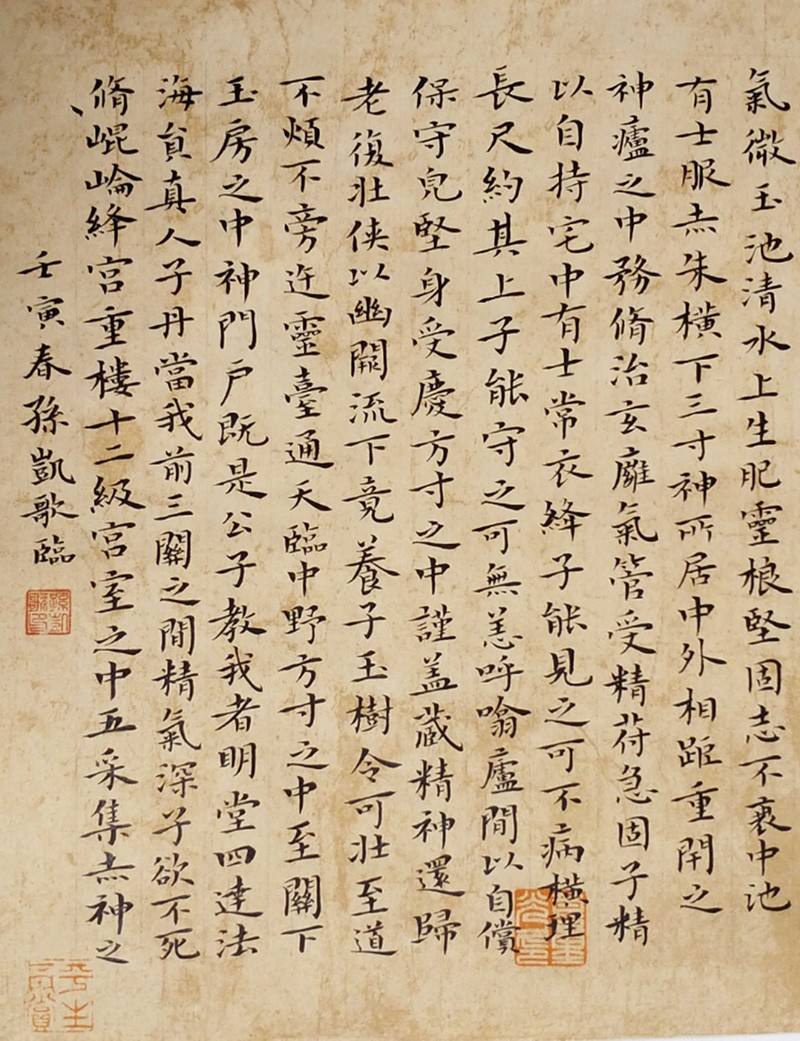 氣微玉池清水上生肥靈根堅固志不衰中池
有士服赤朱橫下三寸神所居中外相距重閇之
神廬之中務脩治玄廱氣管受精苻急固子精
以自持宅中有士常衣絳子能見之可不病橫理
長尺約其上子能守之可無恙呼噏廬間以自償
保守皃堅身受慶方寸之中謹盖藏精神還歸
老復壮侠以幽闕流下竟養子玉樹令可壮至道
不煩不旁迕靈臺通天臨中野方寸之中至關下
玉房之中神門户既是公子教我者明堂四達法
海貟真人子丹當我前三關之間精氣深子欲不死
脩崐崘絳宮重樓十二級宮室之中五采集赤神之
壬寅春孫凱歌臨